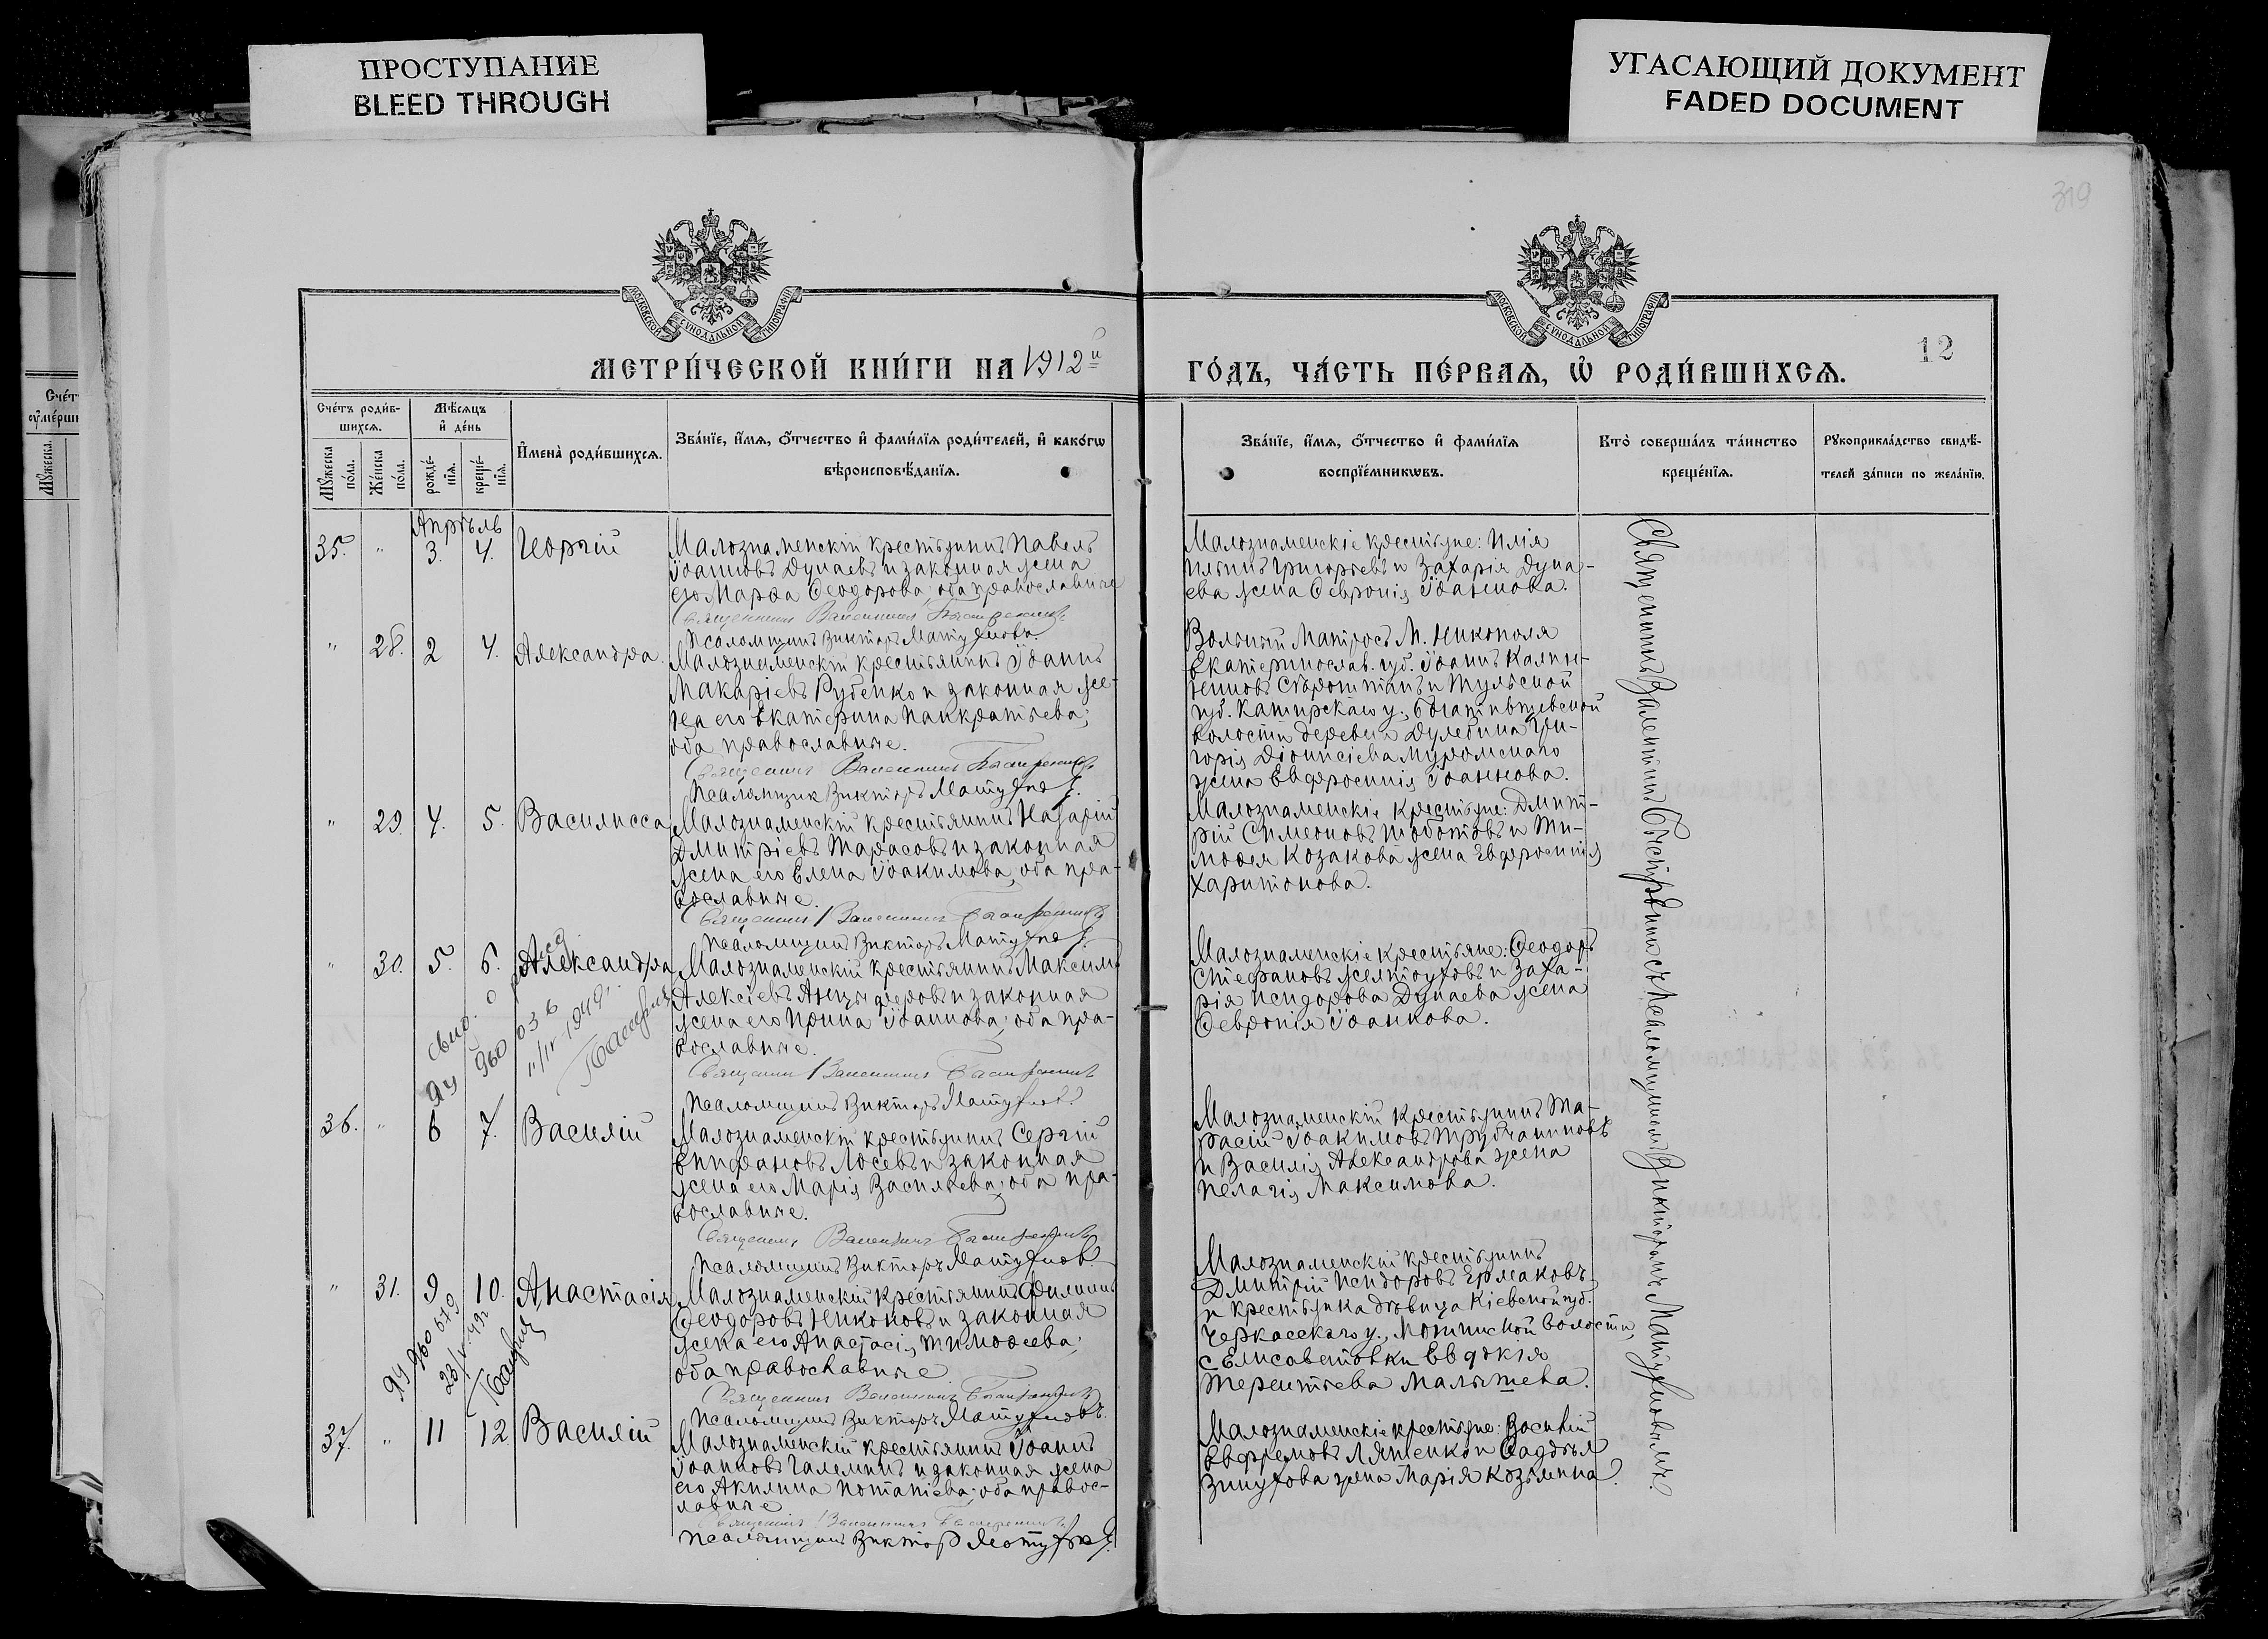 ПРОСТУПАНИЕ
BLEED THROUGH
УГАСАЮЩИЙ ДОКУМЕНТ
FADED DOCUMENT
319
МОСКОВСКОЙ СѴНОДАЛЬНОЙ ТИПОГРАФІИ
МОСКОВСКОЙ СѴНОДАЛЬНОЙ ТИПОГРАФІИ
МЕТРИ́ЧЕСКОЙ КНИ́ГИ НА 1912й
ГО́ДЪ, ЧА́СТЬ ПЕ́РВАЯ, Ѡ҆ РОДИ́ВШИХСЯ.
12
Сче́тъ роди́в-
шихся.
Мѣ́сяцъ
и҆ де́нь
Мꙋ́жеска
по́ла.
Же́нска
по́ла.
рожде́-
нїя.
креще́-
нїя.
И҆мена̀ роди́вшихся.
Зва́нїе, и҆́мя, ѻ҆́тчество и҆ фами́лїя роди́телей, и҆ како́гѡ
вѣроисповѣ́данїя.
Зва́нїе, и҆́мя, ѻ҆́тчество и҆ фами́лїя
воспрїе́мникѡвъ.
Кто̀ соверша́лъ та́инство
креще́нїя.
Рꙋкоприкла́дство свидѣ́-
телей за́писи по жела́нїю.
Апрѣль
35. " 3. 4. Георгій
Малознаменскій крестьянинъ Павелъ
Іоанновъ Дунаевъ и законная жена
его Марѳа Ѳеодорова, оба православные
Священникъ Валентинъ
Псаломщикъ Викторъ
Малознаменскіе крестьяне: Илія
Григорьевъ и Захарія Дуна-
ева жена Ѳевронія Іоаннова.
" 28. 2 4. Александра.
Малознаменскій крестьянинъ Іоаннъ
Макаріевъ Рубенко и законная же-
на его Екатерина Панкратьева;
оба православные.
Священникъ Валентинъ
Псаломщик Викторъ
Вольный Матросъ М. Никополя
Екатеринослав. губ. Іоаннъ
и Тульской
губ. Каширскаго у.,
волости деревни Дулебина Гри-
горія Діонисіева Муромскаго
жена Евфросинія Іоаннова.
" 29. 4. 5. Василисса
Малознаменскій крестьянинъ Назарій
Дмитріевъ Тарасовъ и законная
жена его Елена Іоакимова, оба пра-
вославные.
Священникъ Валентинъ
Псаломщикъ Викторъ
Малознаменскіе крестьяне: Дмит-
рій Симеоновъ и Ти-
моѳея Козакова жена Евфросинія
Харитонова.
" 30. 5. 6. Александра
Малознаменскій крестьянинъ Максимъ
Алексіевъ Анцыферовъ и законная
жена его Ирина Іоаннова; оба пра-
вославные.
Священникъ Валентинъ
Псаломщикъ Викторъ
ЯУ 960036
Малознаменскіе крестьяне: Ѳеодоръ
Стефановъ Желтоуховъ и Заха-
рія Исидорова Дунаева жена
Ѳевронія Іоаннова.
36. " 6 7. Василій
Малознаменскій крестьянинъ Сергій
Епифановъ Лосевъ и законная
жена его Марія Васильева; оба пра-
вославные.
Священникъ Валентинъ
Псаломщикъ Викторъ
Малознаменскій крестьянинъ Та-
расій Іоакимовъ Трубчаниновъ
и Василія Александрова жена
Пелагія Максимова.
" 31. 9 10. Анастасія
Малознаменскій крестьянинъ Филиппъ
Ѳеодоровъ Никоновъ и законная
жена его Анастасія Тимоѳеева;
оба православные
Священникъ Валентинъ
Псаломщикъ Викторъ
ЯУ 960679
Малознаменскій крестьянинъ
Дмитрій Исидоровъ Ермаковъ
и крестьянка дѣвица Кіевской губ.
Черкасскаго у., волости,
с Елисаветовки Евдокія
Терентьева Малышева.
37. " 11 12 Василій
Малознаменскій крестьянинъ Іоаннъ
Іоанновъ Галеминъ и законная жена
его Акилина Потапіева; оба правос-
лавные
Священникъ Валентинъ
Псаломщикъ Виктор
Малознаменскіе крестьяне: Василій
Евфремовъ Ляшенко и Ѳаддѣя
Зинухова жена Марія Козьмина.
Священникъ Валентинъ съ псаломщикомъ Викторомъ